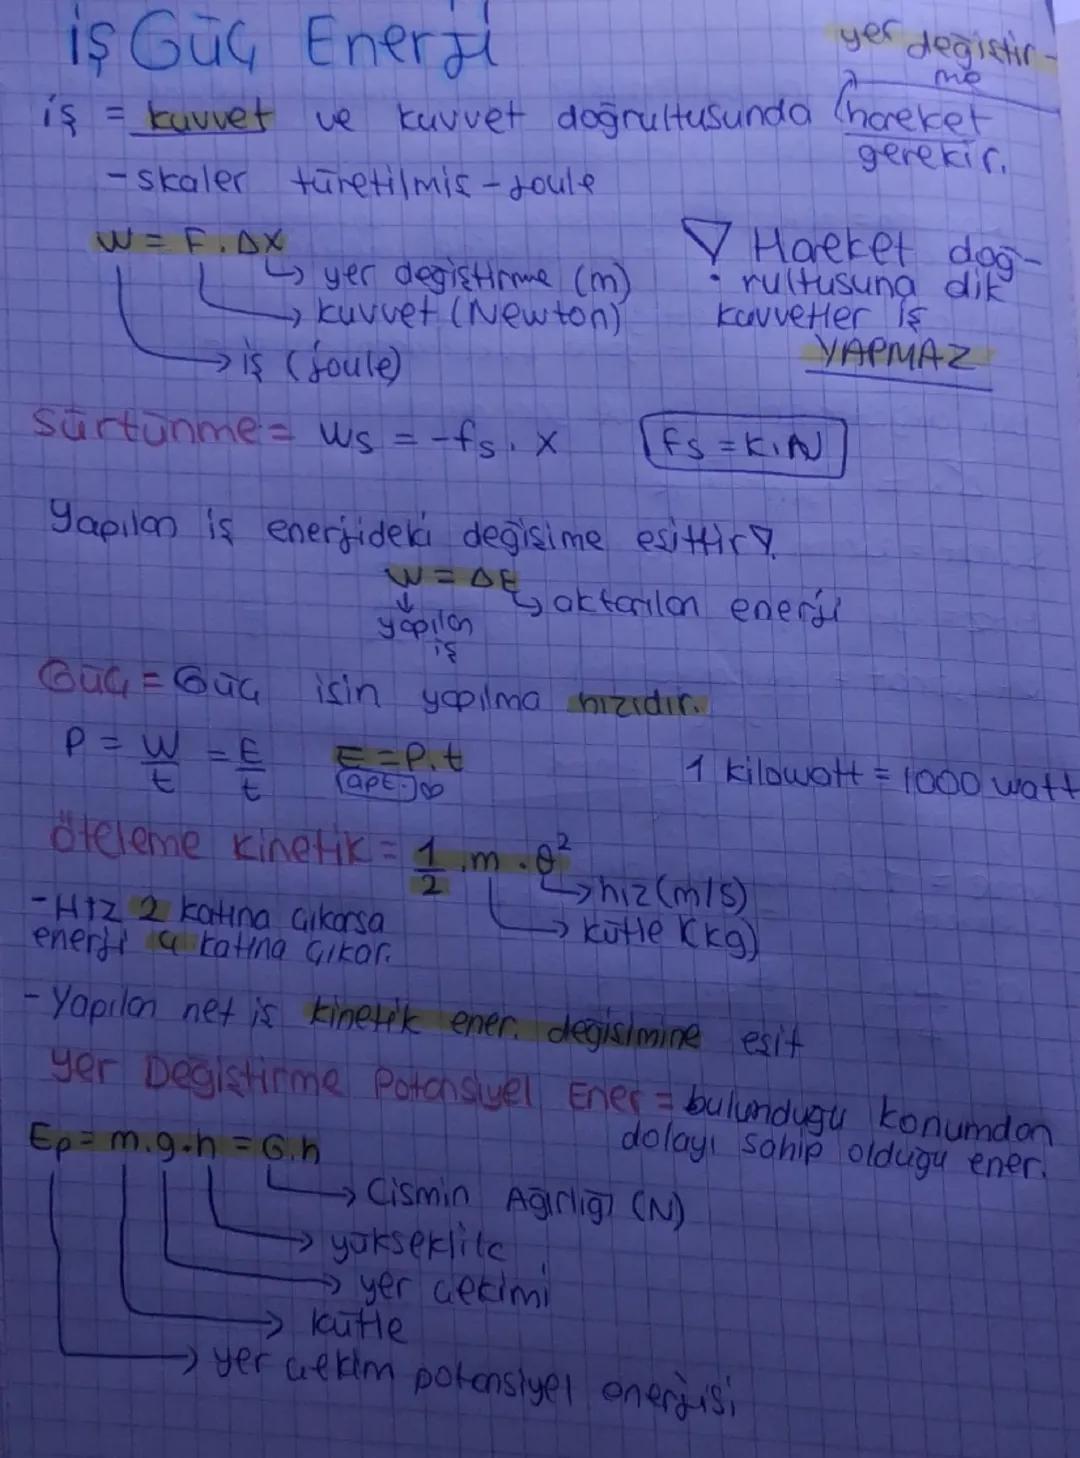 iş Güç Enerji
yer değiştir-
me
iş = kuvvet ve kuvvet doğrultusunda hareket
gerekir.
- skaler türetilmiş - Joule
W = F . Δx
yer değiştirme (m)
kuvvet (Newton)
iş (joule)
Hareket doğ-
rultusuna dik
kuvvetler iş
YAPMAZ
Sürtünme = Ws = -fs . x
fs = k.N
Yapılan iş enerjideki değişime eşittir
W = ΔE
aktarılan enerji
yapılan
iş
Güç = Güç işin yapılma hızıdır.
P = W/t = E/t
E = P.t
(apt.)
1 kilowatt = 1000 watt
Öteleme kinetik = 1/2 .m . ϑ²
hız (m/s)
kütle (kg)
- Hız 2 katına çıkarsa
enerji 4 katına çıkar.
- Yapılan net iş kinetik ener. değişimine eşit
Yer Değiştirme Potansiyel Ener = bulunduğu konumdan
dolayı sahip olduğu ener.
Ep = m.g.h = G.h
Cismin Ağırlığı (N)
yükseklik
yer çekimi
kütle
yer çekim potansiyel enerjisi